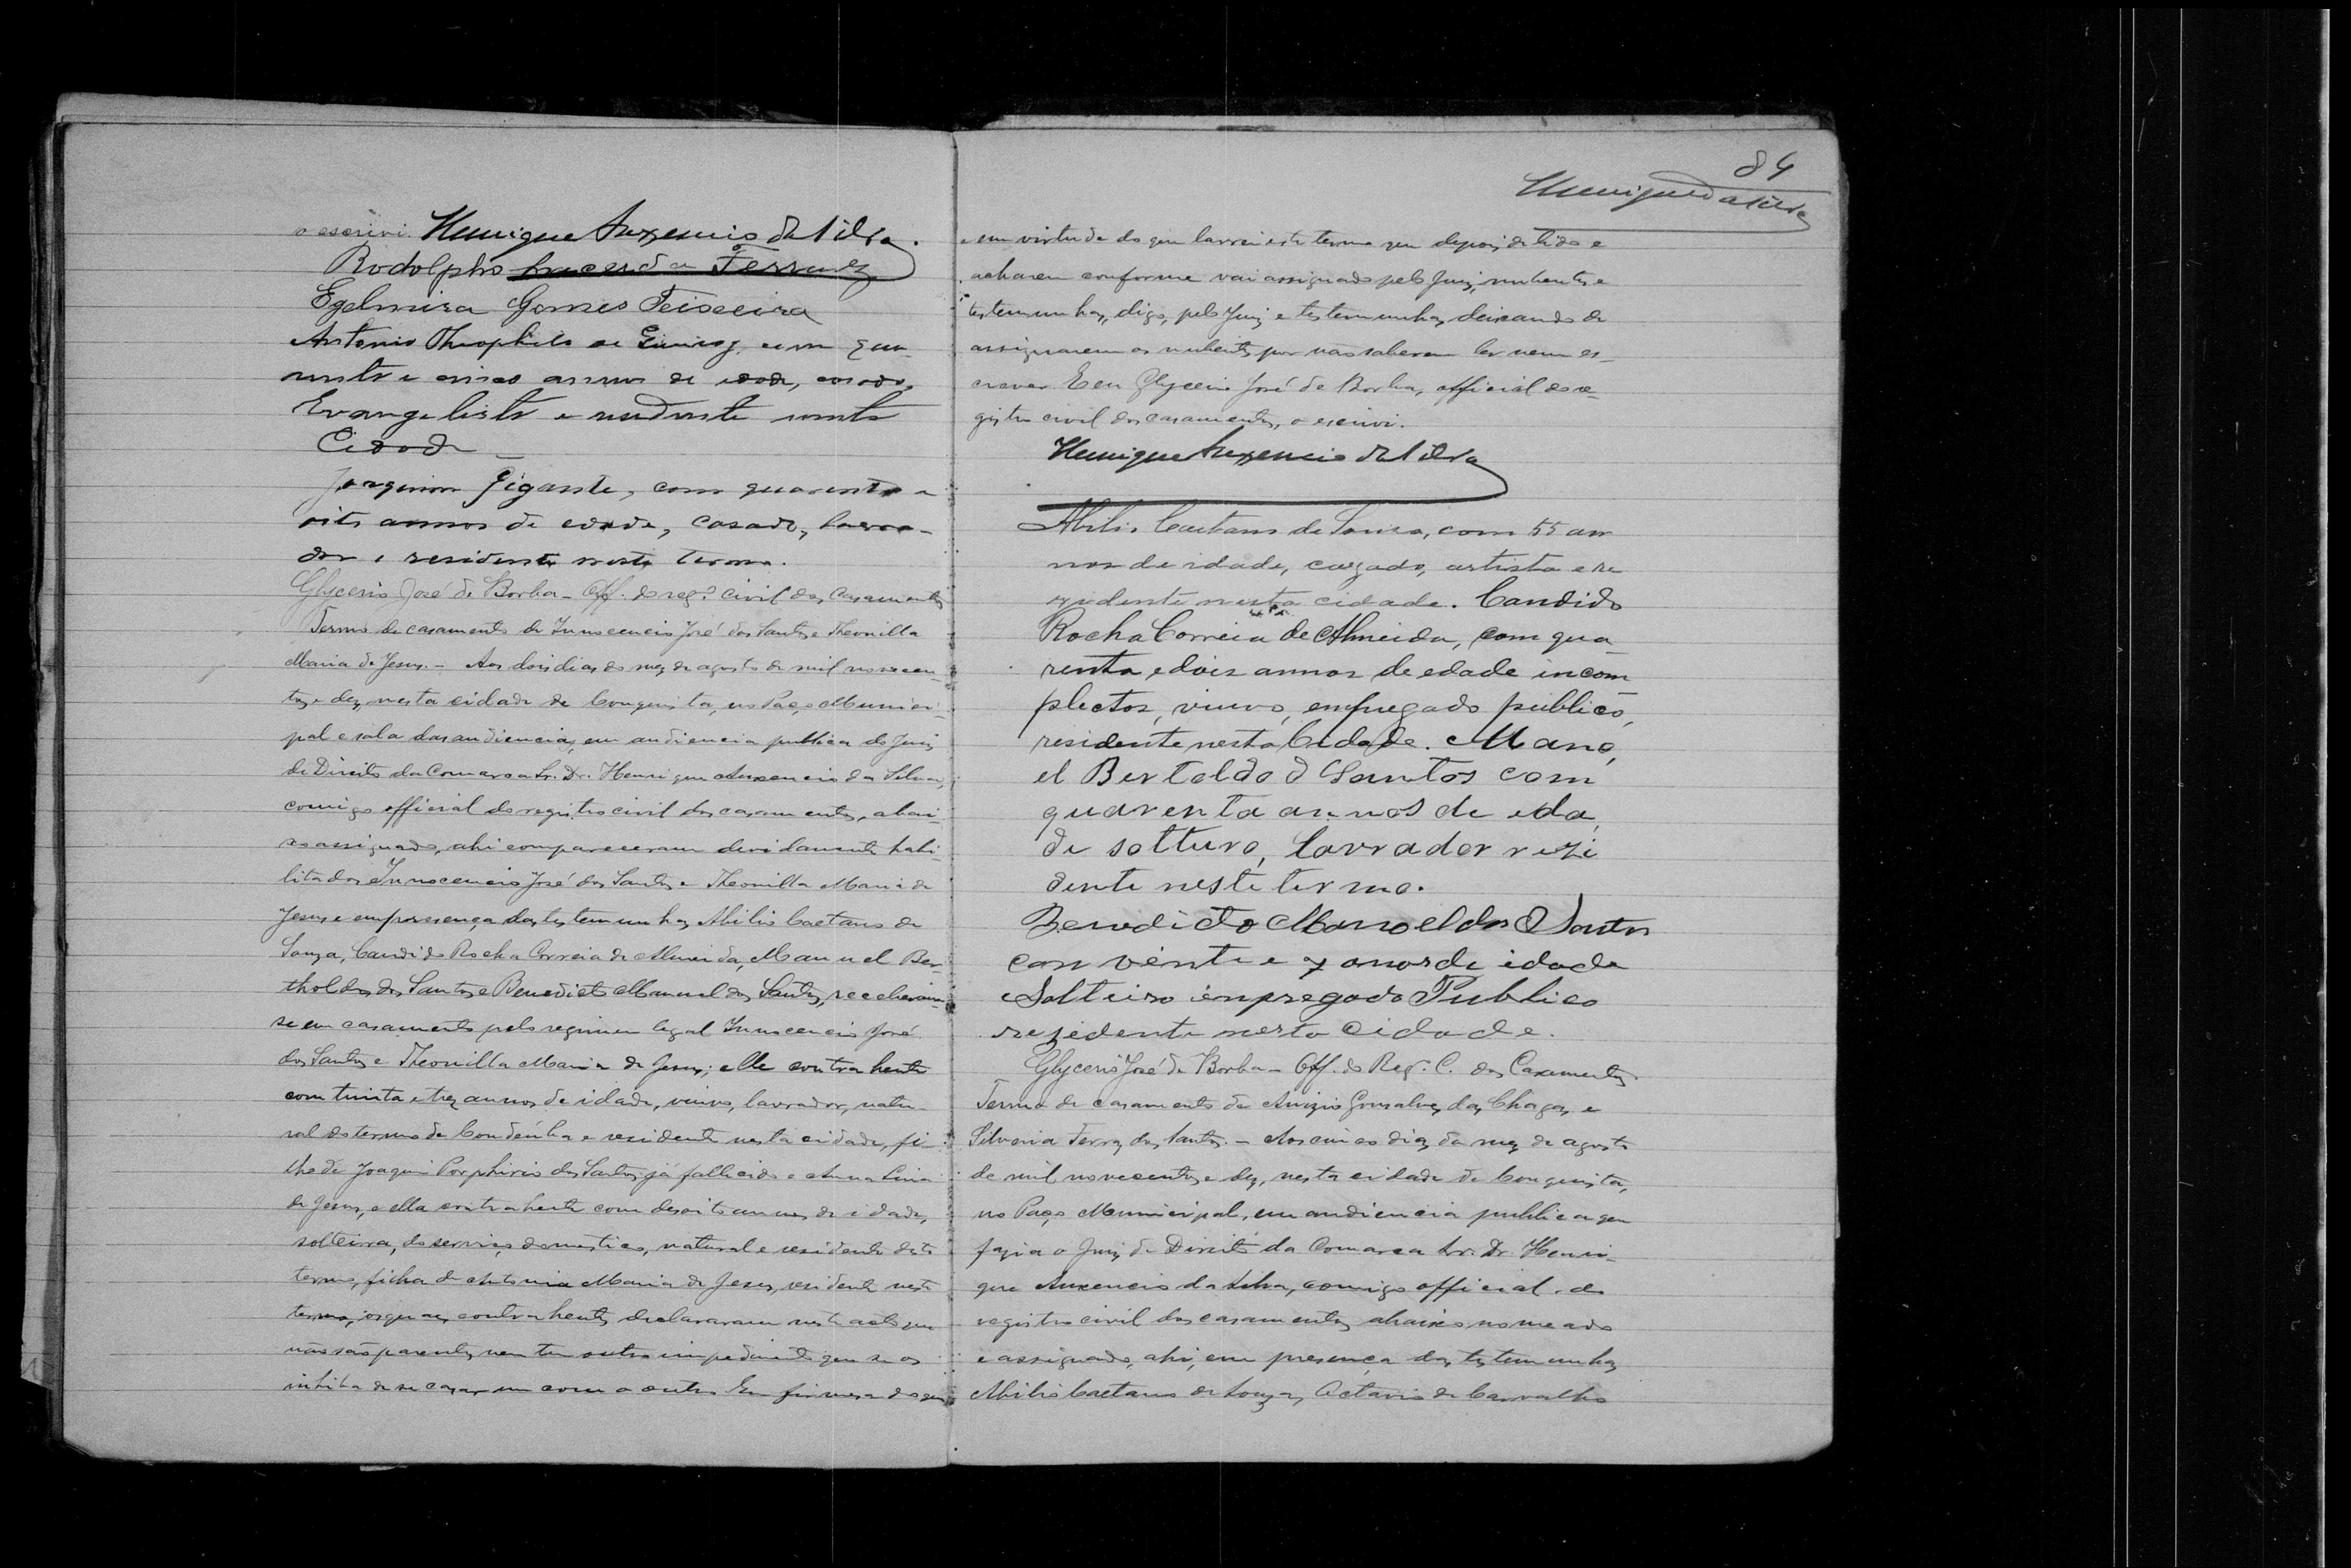 o escrivi. Henrique Auxencio da Silva.
Rodolpho Lacerda Ferraz
Egelmira Gomes Teixeira
Antonio Theophilo de com qua-
renta e cinco annos de idade, casado,
Evangelista e rezidente nesta
Cidade
Joaquim Gigante, com quarenta e
oito annos de edade, casado, lavra-
dor e residente neste termo.
Glycerio José de Borba - Off. do reg.º civil dos Casamentos
Termo de casamento de Innocencio José dos Santos e Theonilla
Maria de Jesus. - Aos dois dias do mez de agosto de mil novecen-
tos e dez, nesta cidade de Conquista, no Paço Munici-
pal e sala das audiencias, em audiencia publica do Juiz
de Direito da Comarca Sr. Dr. Henrique Auxencio da Silva,
comigo official do registro civil dos casamentos, abai-
xo assignado, ahi compareceram devidamente habi-
litados Innocencio José dos Santos e Theonilla Maria de
Jesus e em presença das testemunhas Abilio Caetano de
Souza, Candido Rocha Correia de Almeida, Manuel Ber-
tholdo dos Santos e Benedicto Manuel dos Santos, receberam-
se em casamento pelo regimen legal Innocencio José
dos Santos e Theonilla Maria de Jesus; elle contrahente
com trinta e trez annos de idade, viuvo, lavrador, natu-
ral do termo de Condeúba e residente nesta cidade, fi-
lho de Joaquim Porphirio dos Santos já fallecido e Anna Lina
de Jesus, e ella contrahente com desoito annos de idade,
solteira, do serviço domestico, natural e residente deste
termo, filha de Antonia Maria de Jesus, residente neste
termo, os quaes contrahentes declararam neste acto que
não são parentes nem tem outro impedimento que os
inhiba de se casar um com o outro. Em firmeza do que
84
Henrique da Silva
e em virtude do que lavrei este termo que depois de lido e
acharem conforme vai assignado pelo Juiz, nubentes e
testemunhas, digo, pelo Juiz e testemunhas, deixando de
assignarem os nubentes por não saberem ler nem es-
crever. E eu Glycerio José de Borba, official do re-
gistro civil dos casamentos, o escrivi.
Henrique Auxencio da Silva
Abilio Caetano de Souza, com 55 an
nos de idade, cazado, artista e re
zidente nesta cidade. Candido
Rocha Correia de Almeida, com qua-
renta e dois annos de edade incom
plectos, viuvo, empregado publico,
residente nesta Cidade. Mano,
el Bertoldo d Santos com
quarenta annos de eda,
de solturo, lavrador rezi
dente neste termo.
Benedicto Manoel dos Santos
con vente e 7 anos de idade
Solteiro empregado Publico
rezidente nesta cidade.
Glycerio José de Borba - Off. do Reg. C. dos Casamentos.
Termo de casamento de Gonsalves das Chagas e
Silveria Ferraz dos Santos. - Aos cinco dias do mez de agosto
de mil novecentos e dez, nesta cidade de Conquista,
no Paço Municipal, em audiencia publica que
fazia o Juiz de Direito da Comarca Sr. Dr. Henri-
que Auxencio da Silva, comigo official do
registro civil dos casamentos abaixo nomeado
e assignado, ahi, em presença das testemunhas
Abilio Caetano de Souza, Octavio de Carvalho